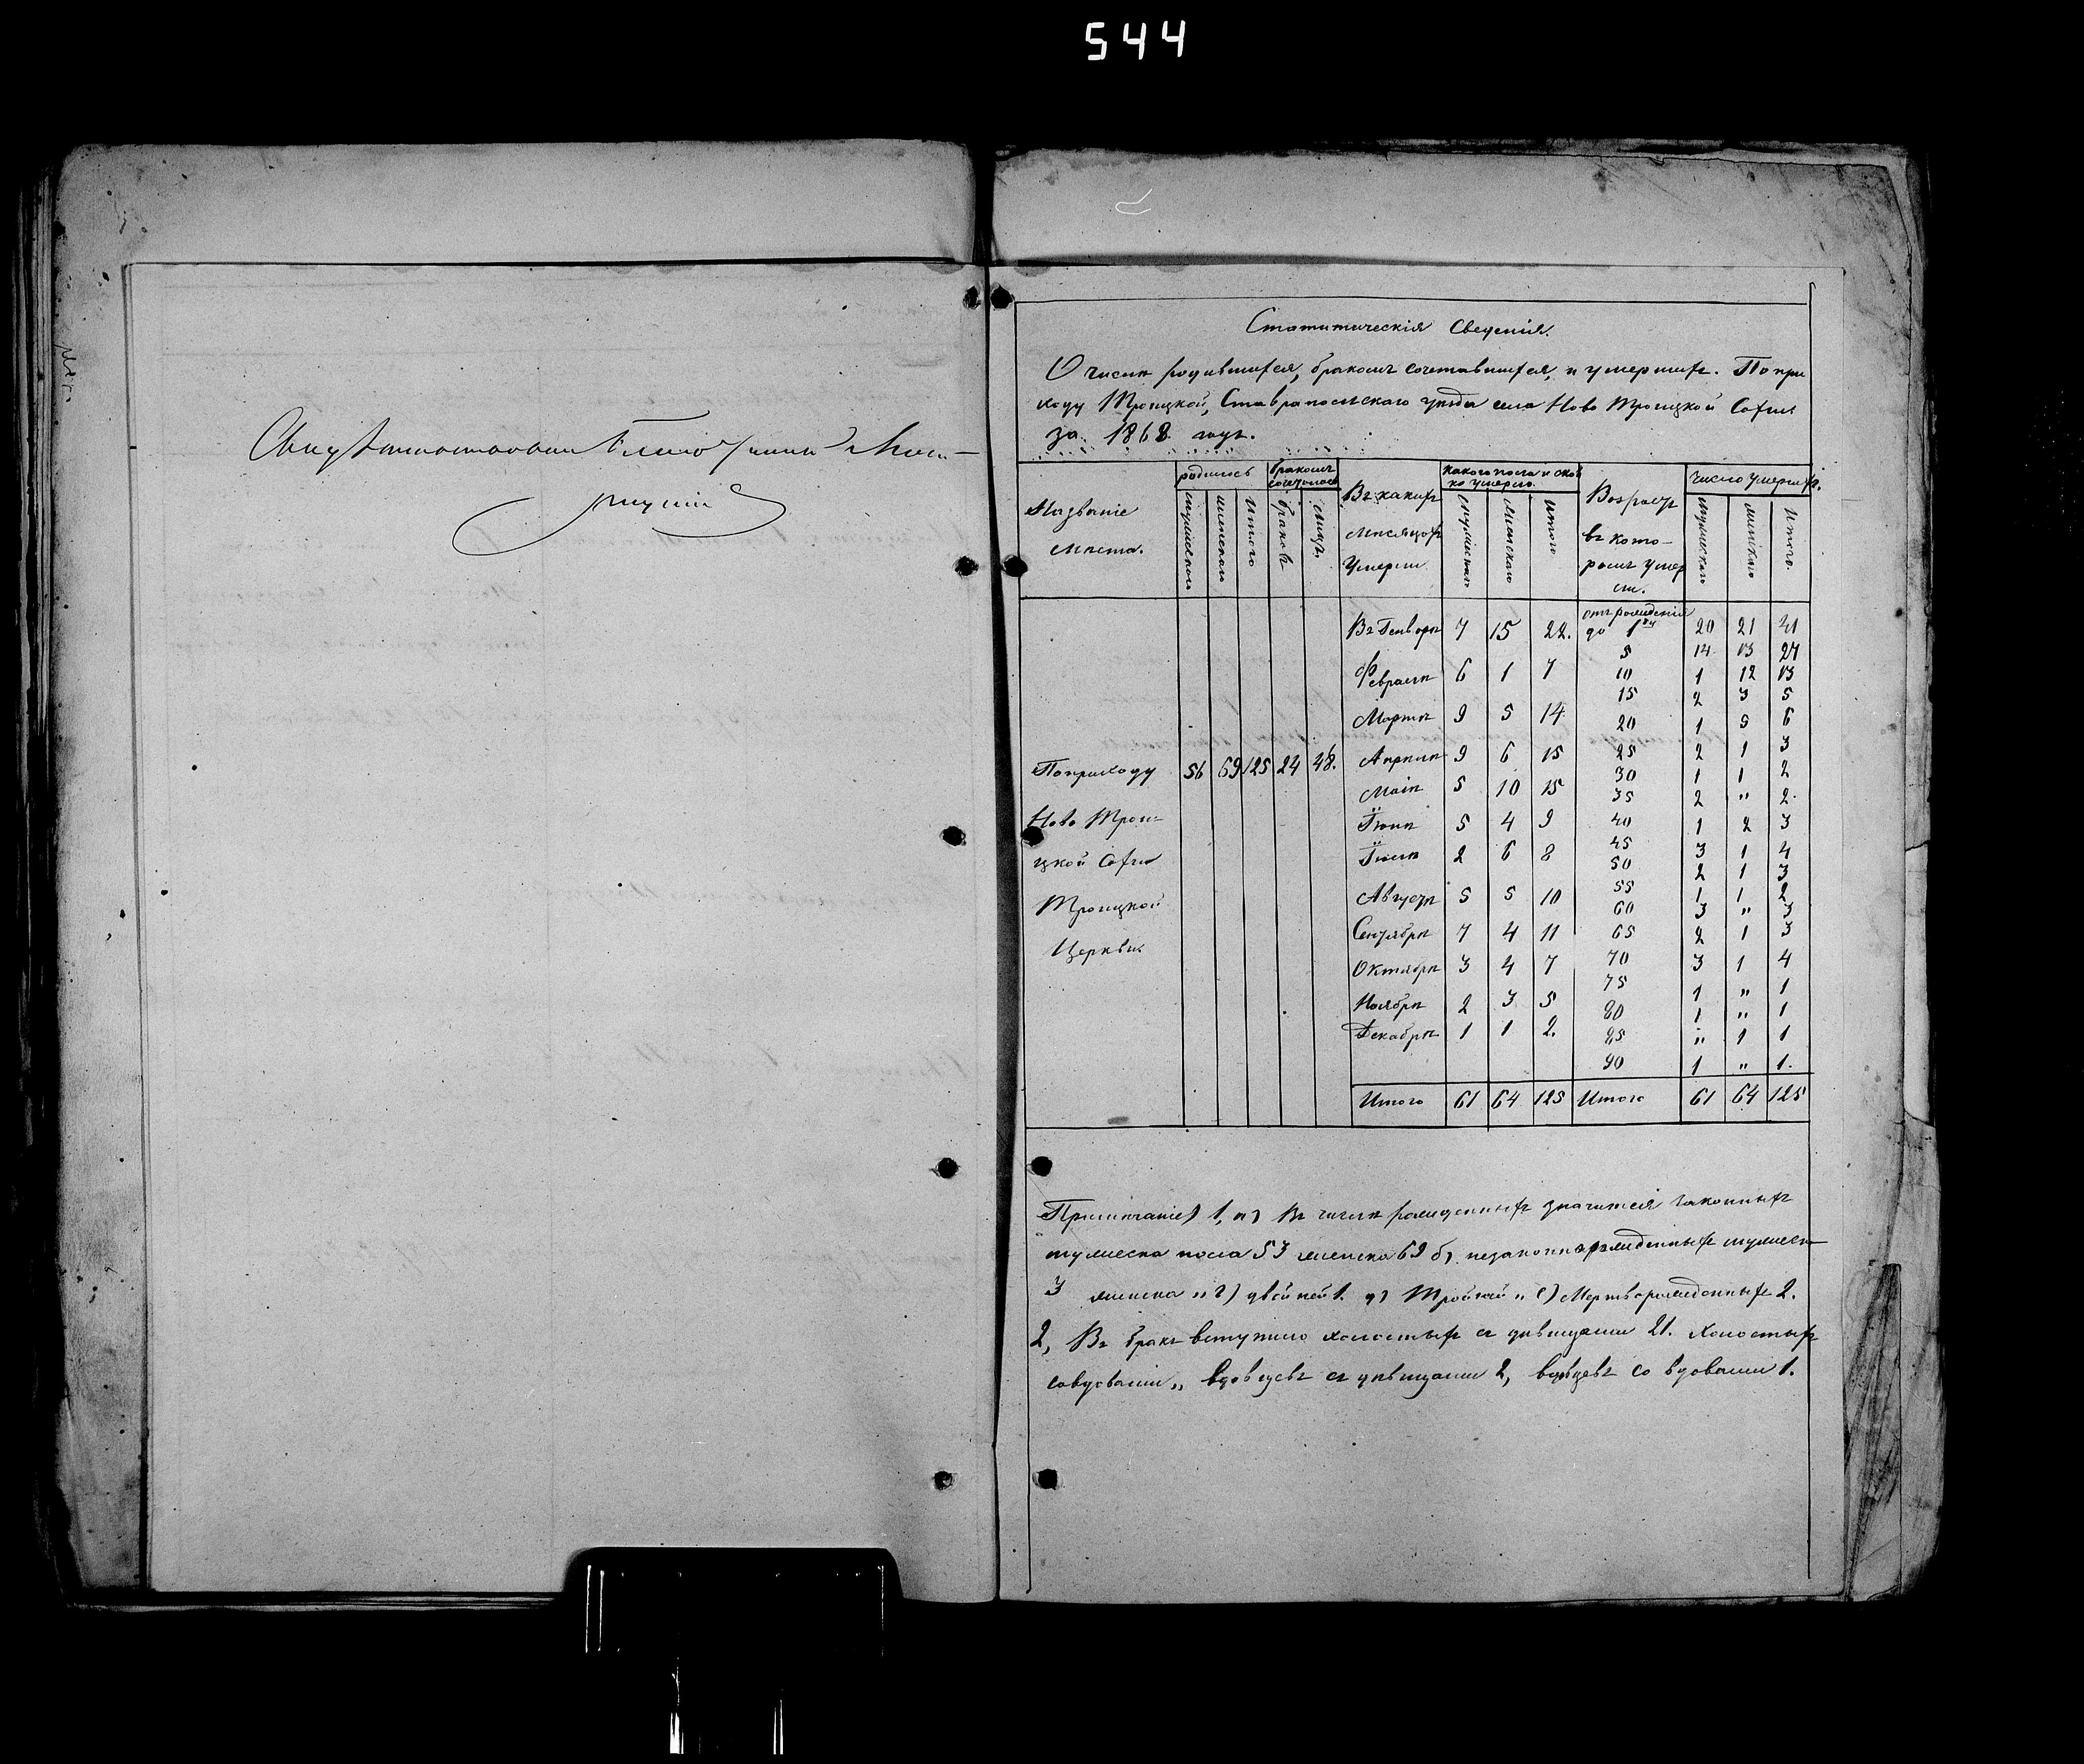 544
Статитическія Сведенія.
О числѣ родившихся, бракомъ сочетавшихся, и умершихъ. По при
ходу Троицкой, Ставропольскаго уѣзда села Ново Троицкой Софіи
за 1868 годъ.
Названіе мѣста.
родилось
мужескаго женскаго Итого
бракомъ сочеталось
браковъ лицъ.
Въ какихъ мѣсяцахъ Умерли
какого пола и сколь ко умерло.
мужескаго Женскаго Итого
Возрастъ въ кото- ромъ умер ли.
число умершихъ.
мужескаго женскаго Итого.
По приходу 56 69 125 24 48.
Ново Трои-
цкой Софіи
Троицкой
Церкви.
Въ Генварѣ 7 15 22.
Февралѣ 6 1 7
Мартѣ 9 5 14
Апрѣлѣ 9 6 15
Маіѣ 5 10 15
Іюнѣ 5 4 9
Іюлѣ 2 6 8
Августѣ 5 5 10
Сентябрѣ 7 4 11
Октябрѣ 3 4 7
Ноябрѣ 2 3 5
Декабрѣ 1 1 2.
Итого 61 64 125
отъ рожденія
до 1 20 21 41
5 14 13 27
10 1 12 13
15 2 3 5
20 1 5 6
25 2 1 3
30 1 1 2
35 2 " 2.
40 1 2 3
45 3 1 4
50 2 1 3
55 1 1 2
60 3 " 3
65 2 1 3
70 3 1 4
75 1 " 1
80 1 " 1
85 " 1 1
90 1 " 1.
Итого 61 64 125
Примѣчаніе) 1, а) Въ числѣ рожденныхъ значится законныхъ
мужеска пола 53 женска 69 б) незаконнорожденныхъ мужеска
3 женска " г) двойней 1. д) Тройней " е) Мертворожденныхъ 2.
2, Въ бракъ вступило холостыхъ съ дѣвицами 21. Холостыхъ
со вдовами „ вдовцевъ съ дѣвицами 2, вдовцевъ со вдовами 1.